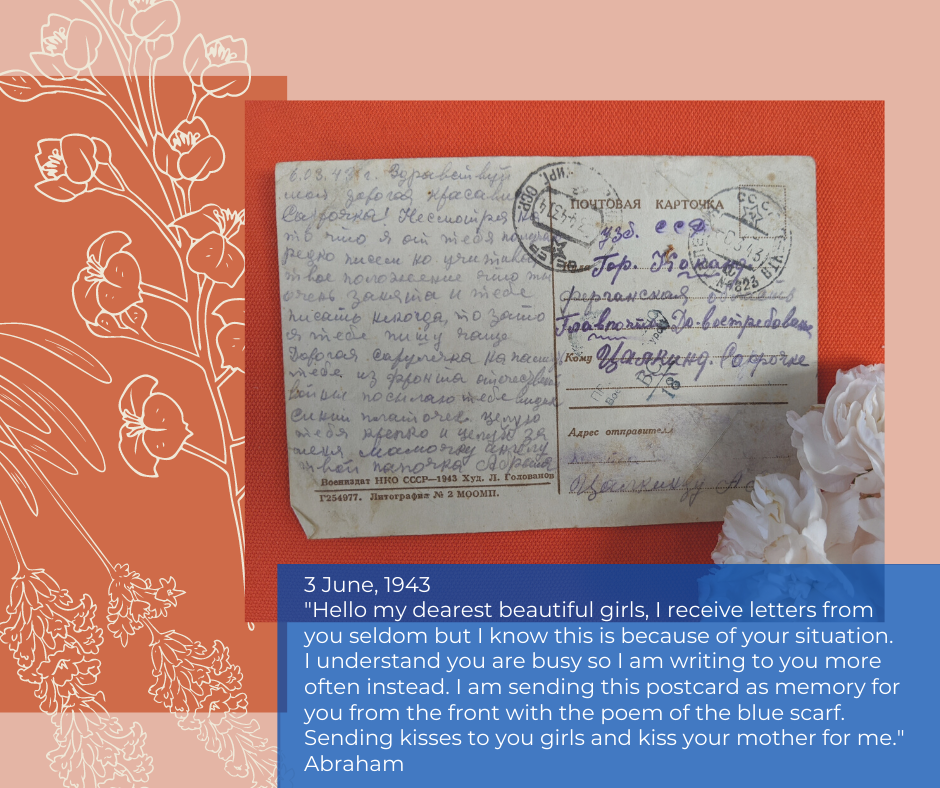 6.03.43 г. Здравствуй
моя дорогая краса
Саррочка! Несмотря на
то что я от тебя
редко письма но учитывая
твое положение что ты
очень занята и тебе
писать некогда, то зато
я тебе пишу чаще
Дорогая саррочка на
тебе из фронта отечествен
войны посылаю тебе
синий платочек. целую
тебя крепко и целуй за
меня мамочку
твой папочка
Воениздат НКО СССР—1943 Худ. Л. Голованов
Г254977. Литография № 2 МООМП.
ПОЧТОВАЯ КАРТОЧКА
Узб. ССР
Гор. Коканд
Ферганская область
Главпочта До-востребования
Кому Цацкинд Саррочке
Адрес отправителя
3 June, 1943
"Hello my dearest beautiful girls, I receive letters from
you seldom but I know this is because of your situation.
I understand you are busy so I am writing to you more
often instead. I am sending this postcard as memory for
you from the front with the poem of the blue scarf.
Sending kisses to you girls and kiss your mother for me."
Abraham